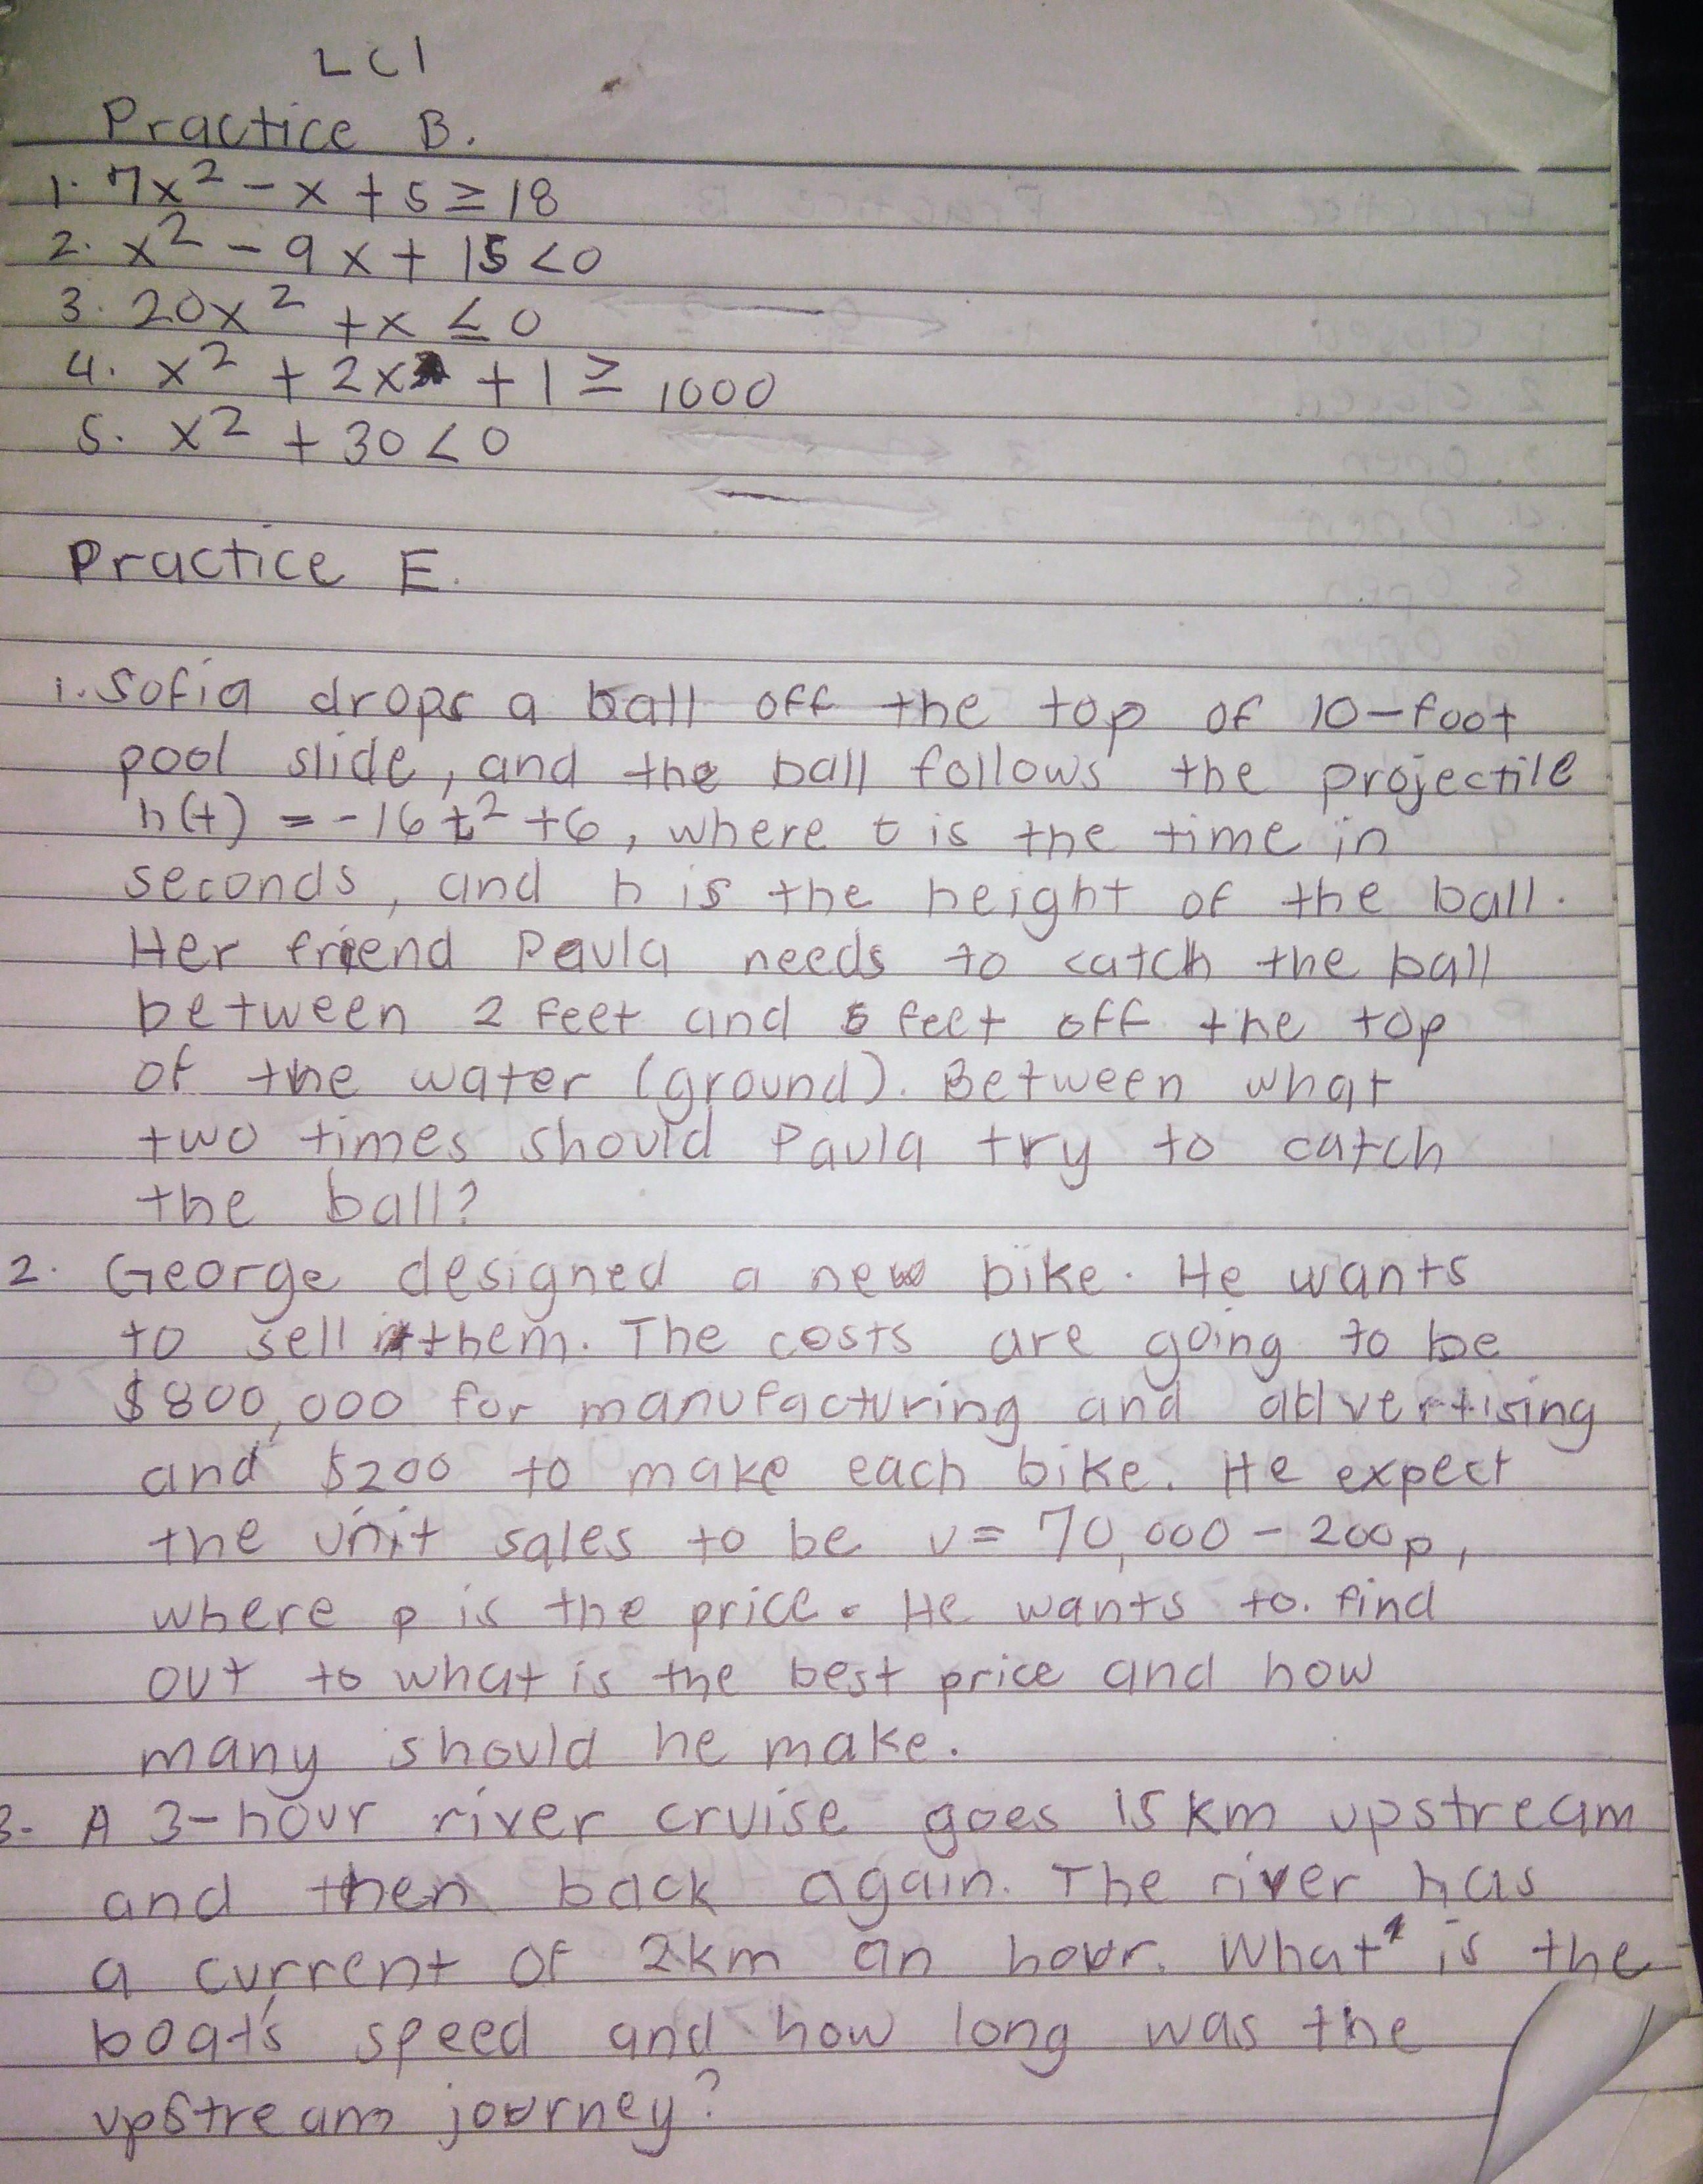 LC1
Practice B.
1. 7x² - x + 5 ≥ 18
2. x² - 9x + 15 < 0
3. 20x² + x ≤ 0
4. x² + 2x + 1 ≥ 1000
5. x² + 30 < 0
Practice E.
1. Sofia drops a ball off the top of 10-foot
pool slide, and the ball follows the projectile
h(t) = -16t² + 6, where t is the time in
seconds, and h is the height of the ball.
Her friend Paula needs to catch the ball
between 2 feet and 5 feet off the top
of the water (ground). Between what
two times should Paula try to catch
the ball?
2. George designed a new bike. He wants
to sell them. The costs are going to be
$800,000 for manufacturing and advertising
and $200 to make each bike. He expect
the unit sales to be v = 70,000 - 200p,
where p is the price. He wants to find
out to what is the best price and how
many should he make.
3. A 3-hour river cruise goes 15 km upstream
and then back again. The river has
a current of 2km an hour. What is the
boat's speed and how long was the
upstream journey?